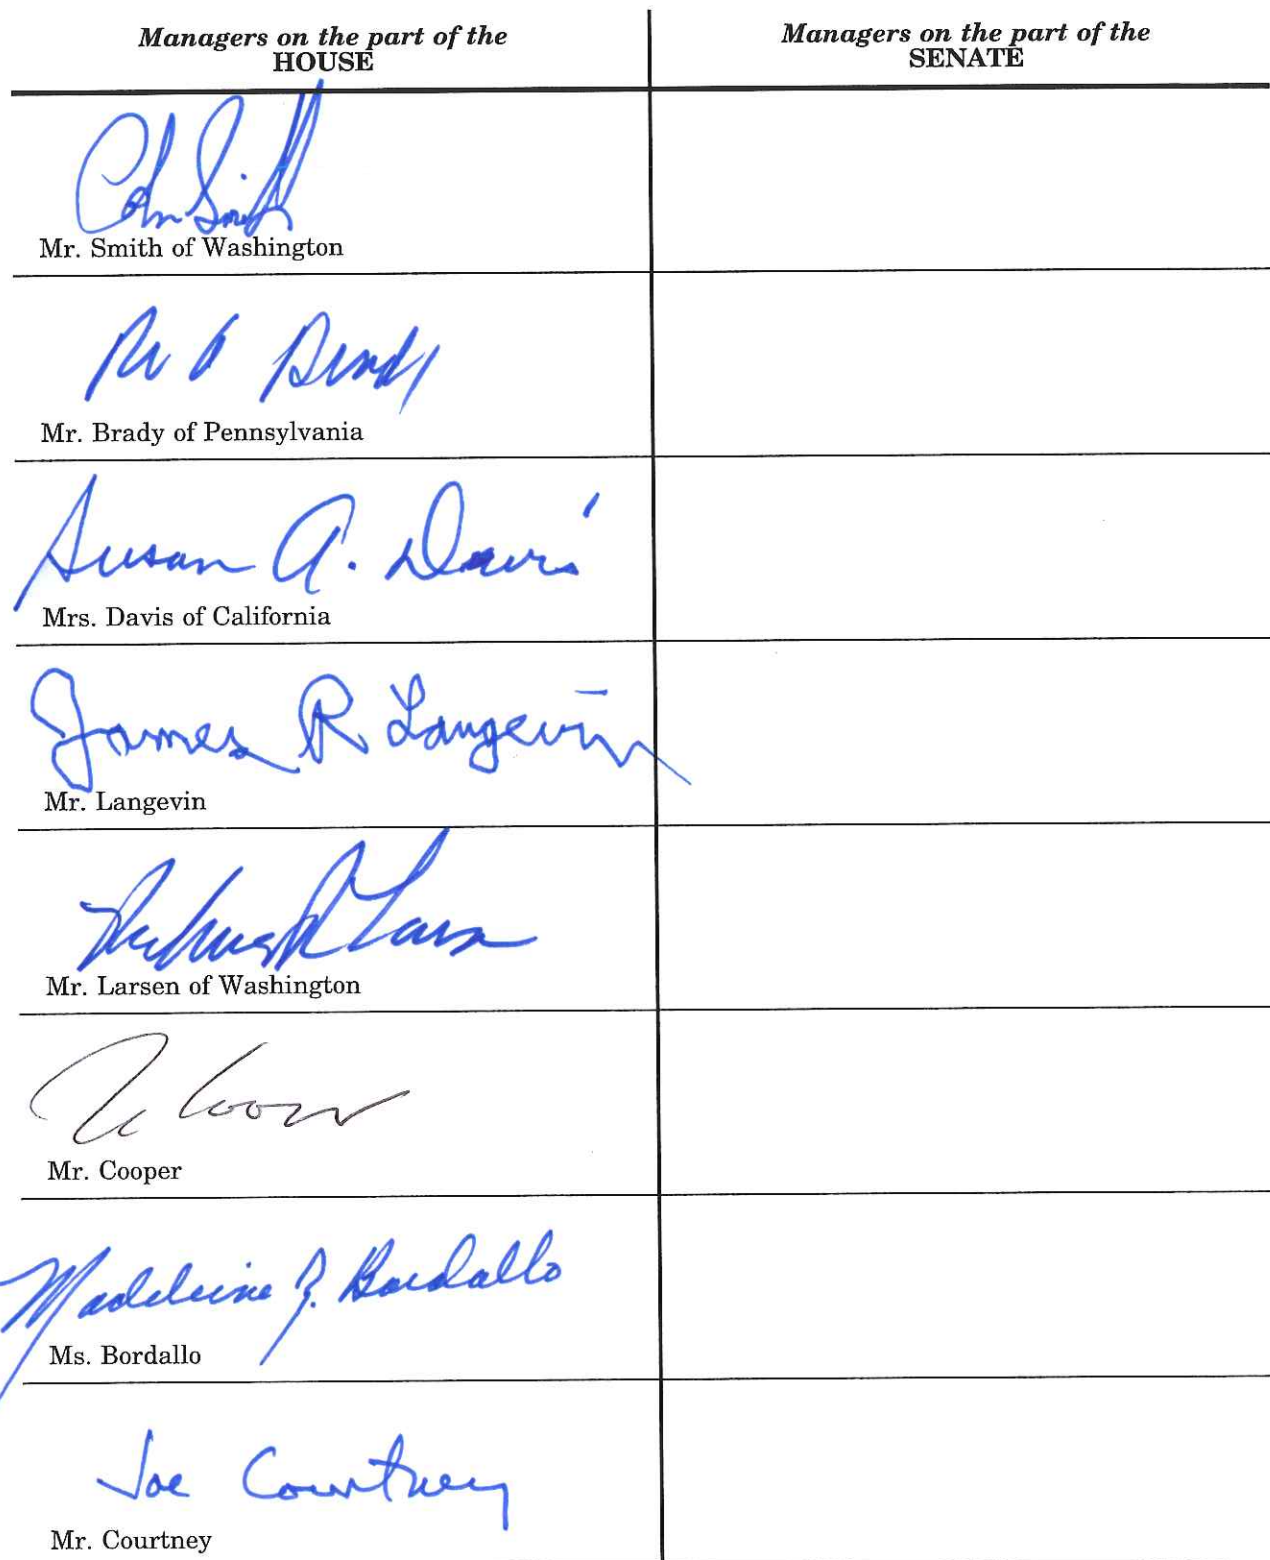 Managers on the part of the
HOUSE
Managers on the part of the
SENATE
Smith
Mr. Smith of Washington
Brady
Mr. Brady of Pennsylvania
Susan A. Davis
Mrs. Davis of California
James R Langevin
Mr. Langevin
Mr. Larsen of Washington
Cooper
Mr. Cooper
Madeleine Z. Bordallo
Ms. Bordallo
Joe Courtney
Mr. Courtney